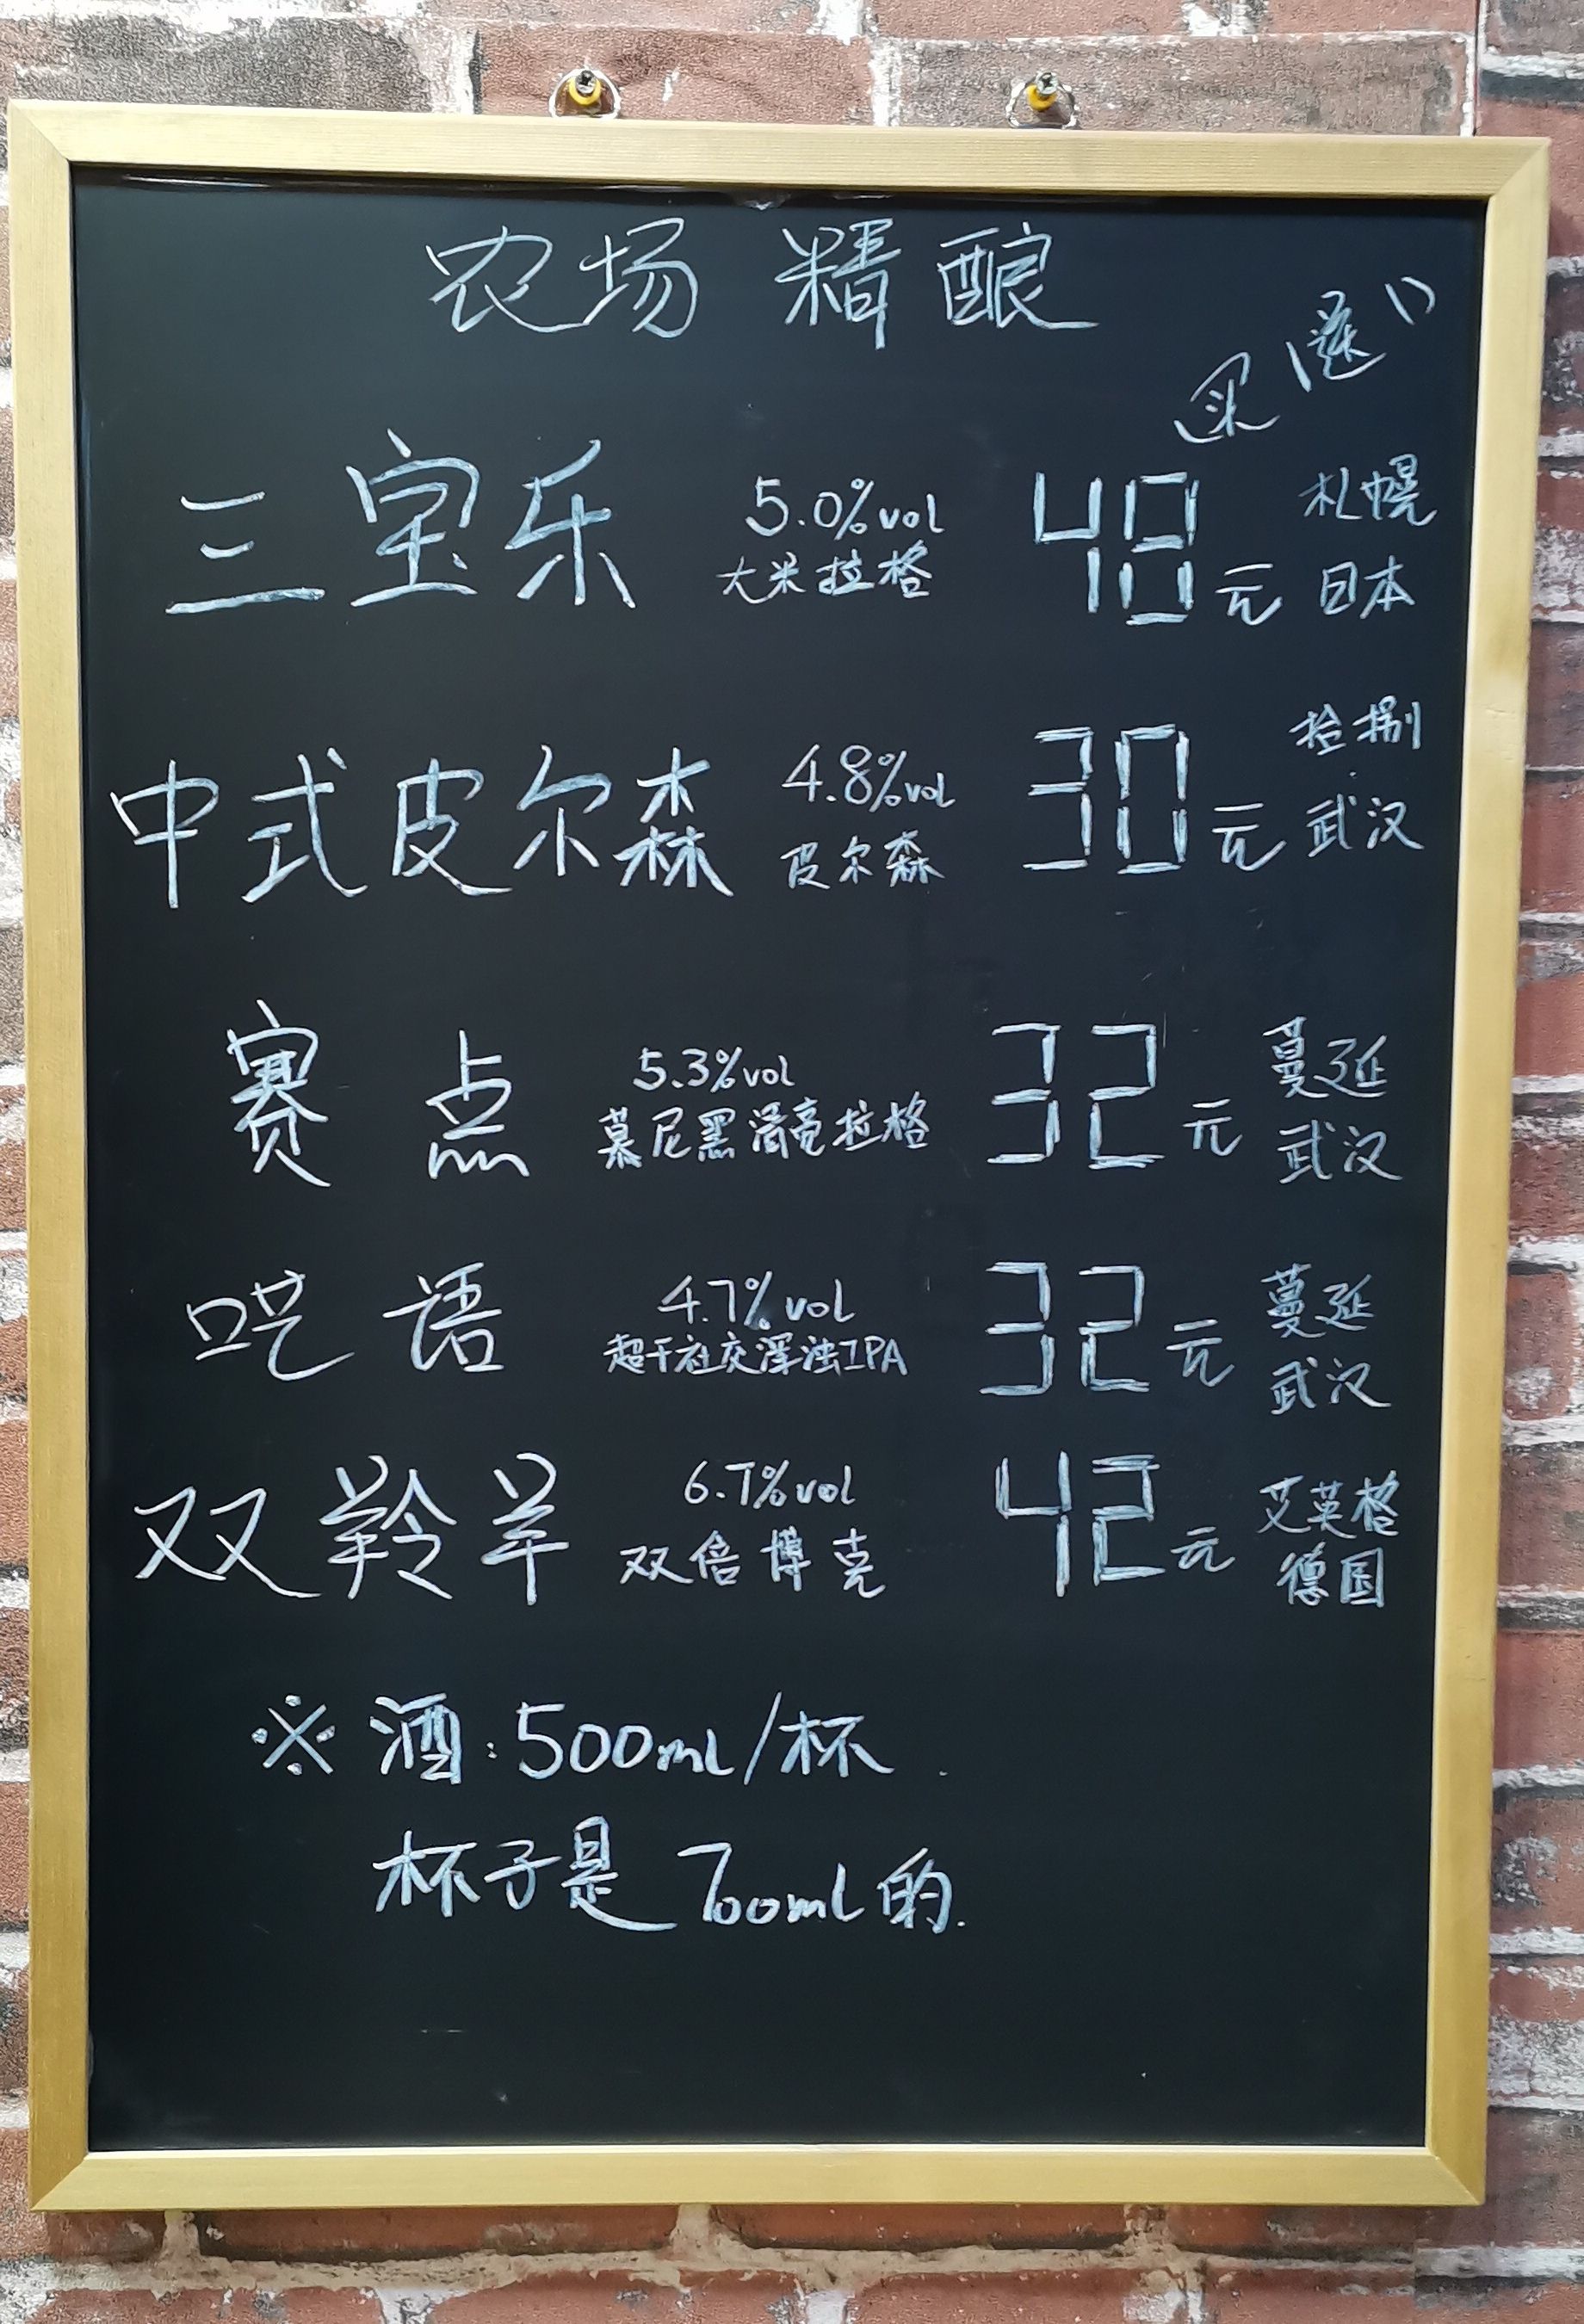 农场 精酿
(买1送1)
三宝乐 5.0%vol 大米拉格 48元 札幌 日本
中式皮尔森 4.8%vol 皮尔森 30元 拾捌 武汉
赛点 5.3%vol 慕尼黑清亮拉格 32元 蔓延 武汉
呓语 4.7%vol 超干社交浑浊IPA 32元 蔓延 武汉
双羚羊 6.7%vol 双倍博克 42元 艾英格 德国
※ 酒:500ml/杯.
杯子是700ml的.